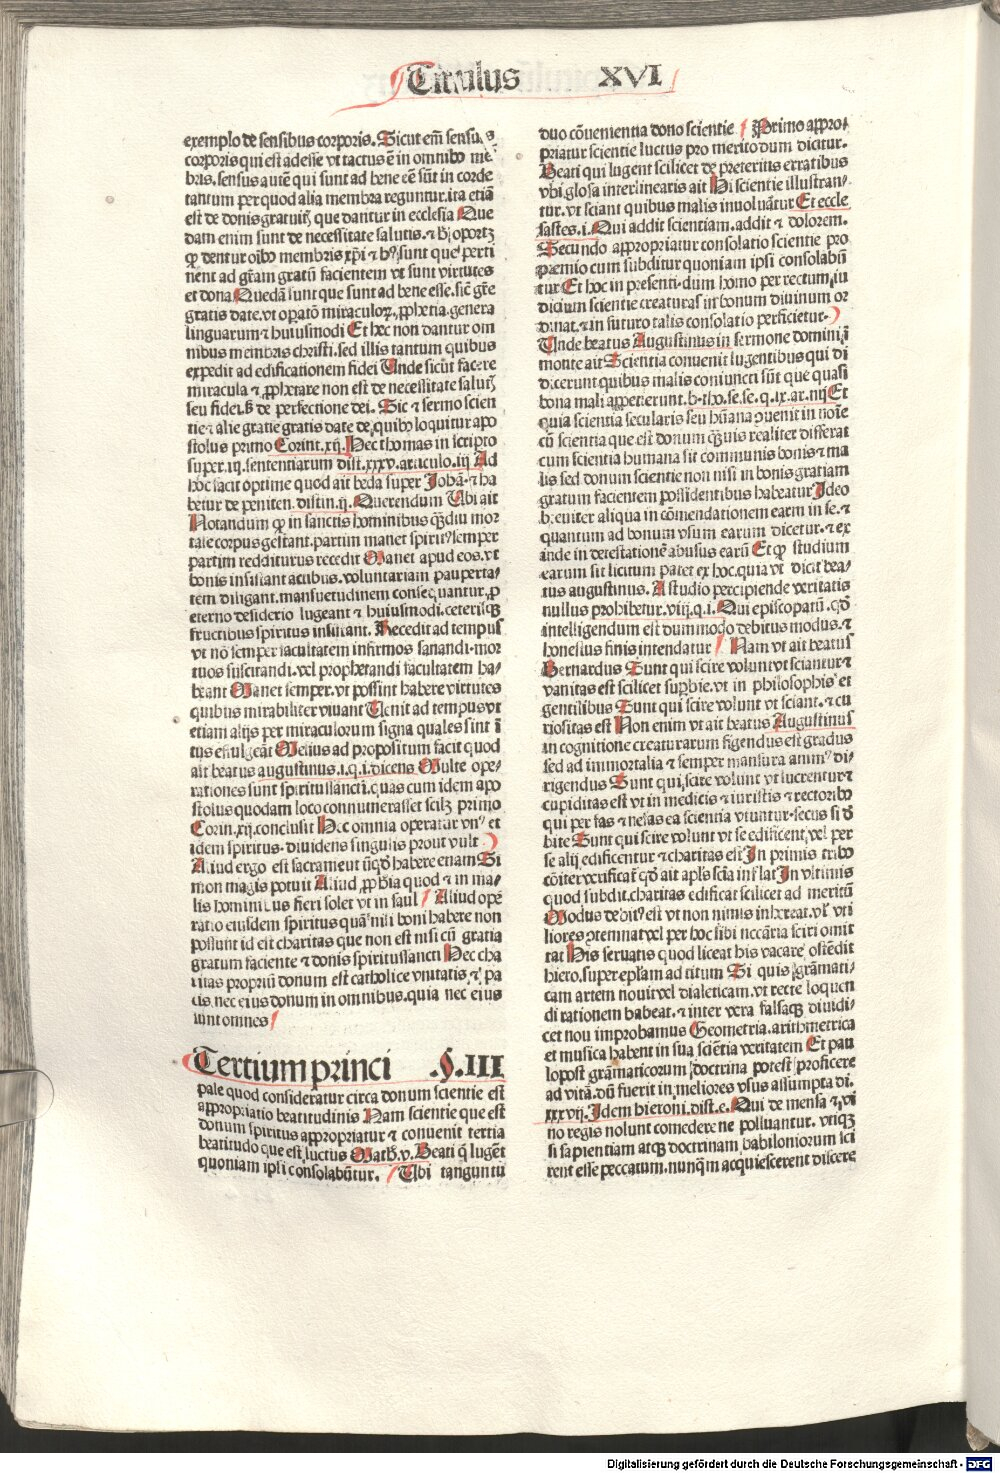 Titulus XVI
exemplo de sensibus corporis. Sicut em̄ sensus
corporis qui est ad esse vt tactus ē in omnibꝰ mē
bris. sensus autē qui sunt ad bene eē sūt in corde
tantum per quod alia membra reguntur. ita etiā
est de donis gratuitꝭ que dantur in ecclesia Que
dam enim sunt de necessitate salutis. ⁊ oportꝫ
ꝙ dentur oībꝰ membris xp̄i ⁊ sunt que perti
nent ad gr̄am gratū facientem vt sunt virtutes
et dona Quedā sunt que sunt ad bene esse. sic gr̄e
gratis date. vt opatō miraculoꝝ, ꝓphetia. genera
linguarum ⁊ huiusmodi Et hec non dantur om
nibus membris christi. sed illis tantum quibus
expedit ad edificationem fidei Unde sicut facere
miracula ⁊ ꝓphetare non est de necessitate salutꝭ
seu fidei. sꝫ de perfectione dei. Sic ⁊ sermo scien
tie ⁊ alie gratie gratis date de quibꝰ loquitur apo
stolus primo Corint. xij. Hec thomas in scripto
super. iij. sententiarum dist. xxxv. articulo. iij Ad
hoc facit optime quod ait beda super Johā. ⁊ ha
betur de peniten. distin. ij. Querendum Ubi ait
Notandum ꝙ in sanctis hominibus qꝫdiu mor
tale corpus gestant. partim manet spiritꝰ semper
partim redditurus recedit Manet apud eos. vt
bonis insistant actibus. voluntariam pauperta-
tem diligant. mansuetudinem consequantur, ꝓ
eterno desiderio lugeant ⁊ huiusmodi. ceterisqꝫ
fructibus spiritus insistant. Recedit ad tempus
vt nō semper facultatem infirmos sanandi. mor
tuos suscitandi. vel prophetandi facultatem ha-
beant Manet semper. vt possint habere virtutes
quibus mirabiliter viuant Uenit ad tempus vt
etiam alijs per miraculorum signa quales sint ī
tus effulgeāt Melius ad propositum facit quod
ait beatus augustinus. i. q. i. dicens Multe ope-
rationes sunt spiritussancti. quas cum idem apo
stolus quodam loco connumerasset scilꝫ primo
Corin. xij. conclusit Hec omnia operatur vnꝰ et
idem spiritus. diuidens singulis prout vult
Aliud ergo est sacramentum qd̄ habere etiam Si
mon magꝰ potuit Aliud, ꝓphīa quod ⁊ in ma-
lis hominibus fieri solet vt in saul Aliud opē
ratio eiusdem spiritus quā nisi boni habere non
possunt id est charitas que non est nisi cū gratia
gratum faciente ⁊ donis spiritussancti Hec cha
ritas propriū donum est catholice vnitatis, ⁊ pa
cis. nec eius donum in omnibus. quia nec eius
sunt omnes
Tertium princi §. III
pale quod consideratur circa donum scientie est
appropriatio beatitudinis Nam scientie que est
donum spiritus appropriatur ⁊ conuenit tertia
beatitudo que est luctus Math. v. Beati q̄ lugēt
quoniam ipsi consolabūtur. Ubi tanguntu
duo cōuenientia dono scientie Primo appro-
priatur scientie luctus pro merito dum dicitur.
Beati qui lugent scilicet de preteritis erratibus
vbi. glosa interlinearis ait Hi scientie illustran-
tur. vt sciant quibus malis inuoluātur Et eccle
siastes. i. Qui addit scientiam. addit ⁊ dolorem.
Secundo appropriatur consolatio scientie pro
premio cum subditur quoniam ipsi consolabū
tur Et hoc in presenti. dum homo per rectum iu
dicium scientie creaturas in bonum diuinum or
dinat. ⁊ in futuro talis consolatio perficietur.
Unde beatus Augustinus in sermone domini ī
monte ait Scientia conuenit lugentibus qui di
dicerunt quibus malis coniuncti sūt que quasi
bona mali appetierunt. b. tho. se. se. q. ix. ar. iiij Et
quia scientia secularis seu hūana ꝯuenit in noīe
cū scientia que est donum qꝫuis realiter differat
cum scientia humana sit communis bonis ⁊ ma
lis sed donum scientie non nisi in bonis gratiam
gratum facientem possidentibus habeatur Ideo
breuiter aliqua in cōmendationem earm in se. ⁊
quantum ad bonum vsum earum dicetur. ⁊ ex
inde in detestationē abusus earū Et ꝙ studium
earum sit licitum patet ex hoc. quia vt dicit bea-
tus augustinus. A studio percipiende veritatis
nullus prohibetur. viij. q. i. Qui episcopatū. qd̄
intelligendum est dummodo debitus modus. ⁊
honestus finis intendatur Nam vt ait beatus
Bernardus Sunt qui scire volunt vt sciantur ⁊
vanitas est scilicet suꝑbie. vt in philosophis et
gentilibus Sunt qui scire volunt vt sciant. ⁊ cu
riositas est Non enim vt ait beatus Augustinus
in cognitione creaturarum figendus est gradus
sed ad immortalia ⁊ semper mansura animꝰ di-
rigendus Sunt qui scire volunt vt lucrentur ⁊
cupiditas est vt in medicis ⁊ iuristis ⁊ rectoribꝰ
qui per fas ⁊ nefas ea scientia vtuntur. secus si d̄
bite Sunt qui scire volunt vt se edificent, vel per
se alij edificentur ⁊ charitas est In primis tribꝰ
cōiter verificaṫ qd̄ ait apl̄s scīa inflat In vltimis
quod subdit. charitas edificat scilicet ad meritū
Modus debitꝰ est vt non nimis inhereat. vl vti
liores ꝯtemnat vel per hoc sibi necc̄aria sciri omit
tat His seruatis quod liceat his vacare ostēdit
hiero. super epl̄am ad titum Si quis grāmati-
cam artem nouit vel dialeticam. vt recte loquen
di rationem habeat. ⁊ inter vera falsaqꝫ diuidi-
cet non improbamus Geometria. arithmetrica
et musica habent in sua sciētia veritatem Et pau
lopost grāmaticorum doctrina potest proficere
ad vitā. dū fuerit in meliores vsus assumpta di.
xxxvij. Idem hieroni. dist. e. Qui de mensa ⁊ vi
no regis nolunt comedere ne polluantur. vtiqꝫ
si sapientiam atqꝫ doctrinam babiloniorum sci
rent esse peccatum. nunqꝫ acquiescerent discere
Digitalisierung gefördert durch die Deutsche Forschungsgemeinschaft - DFG